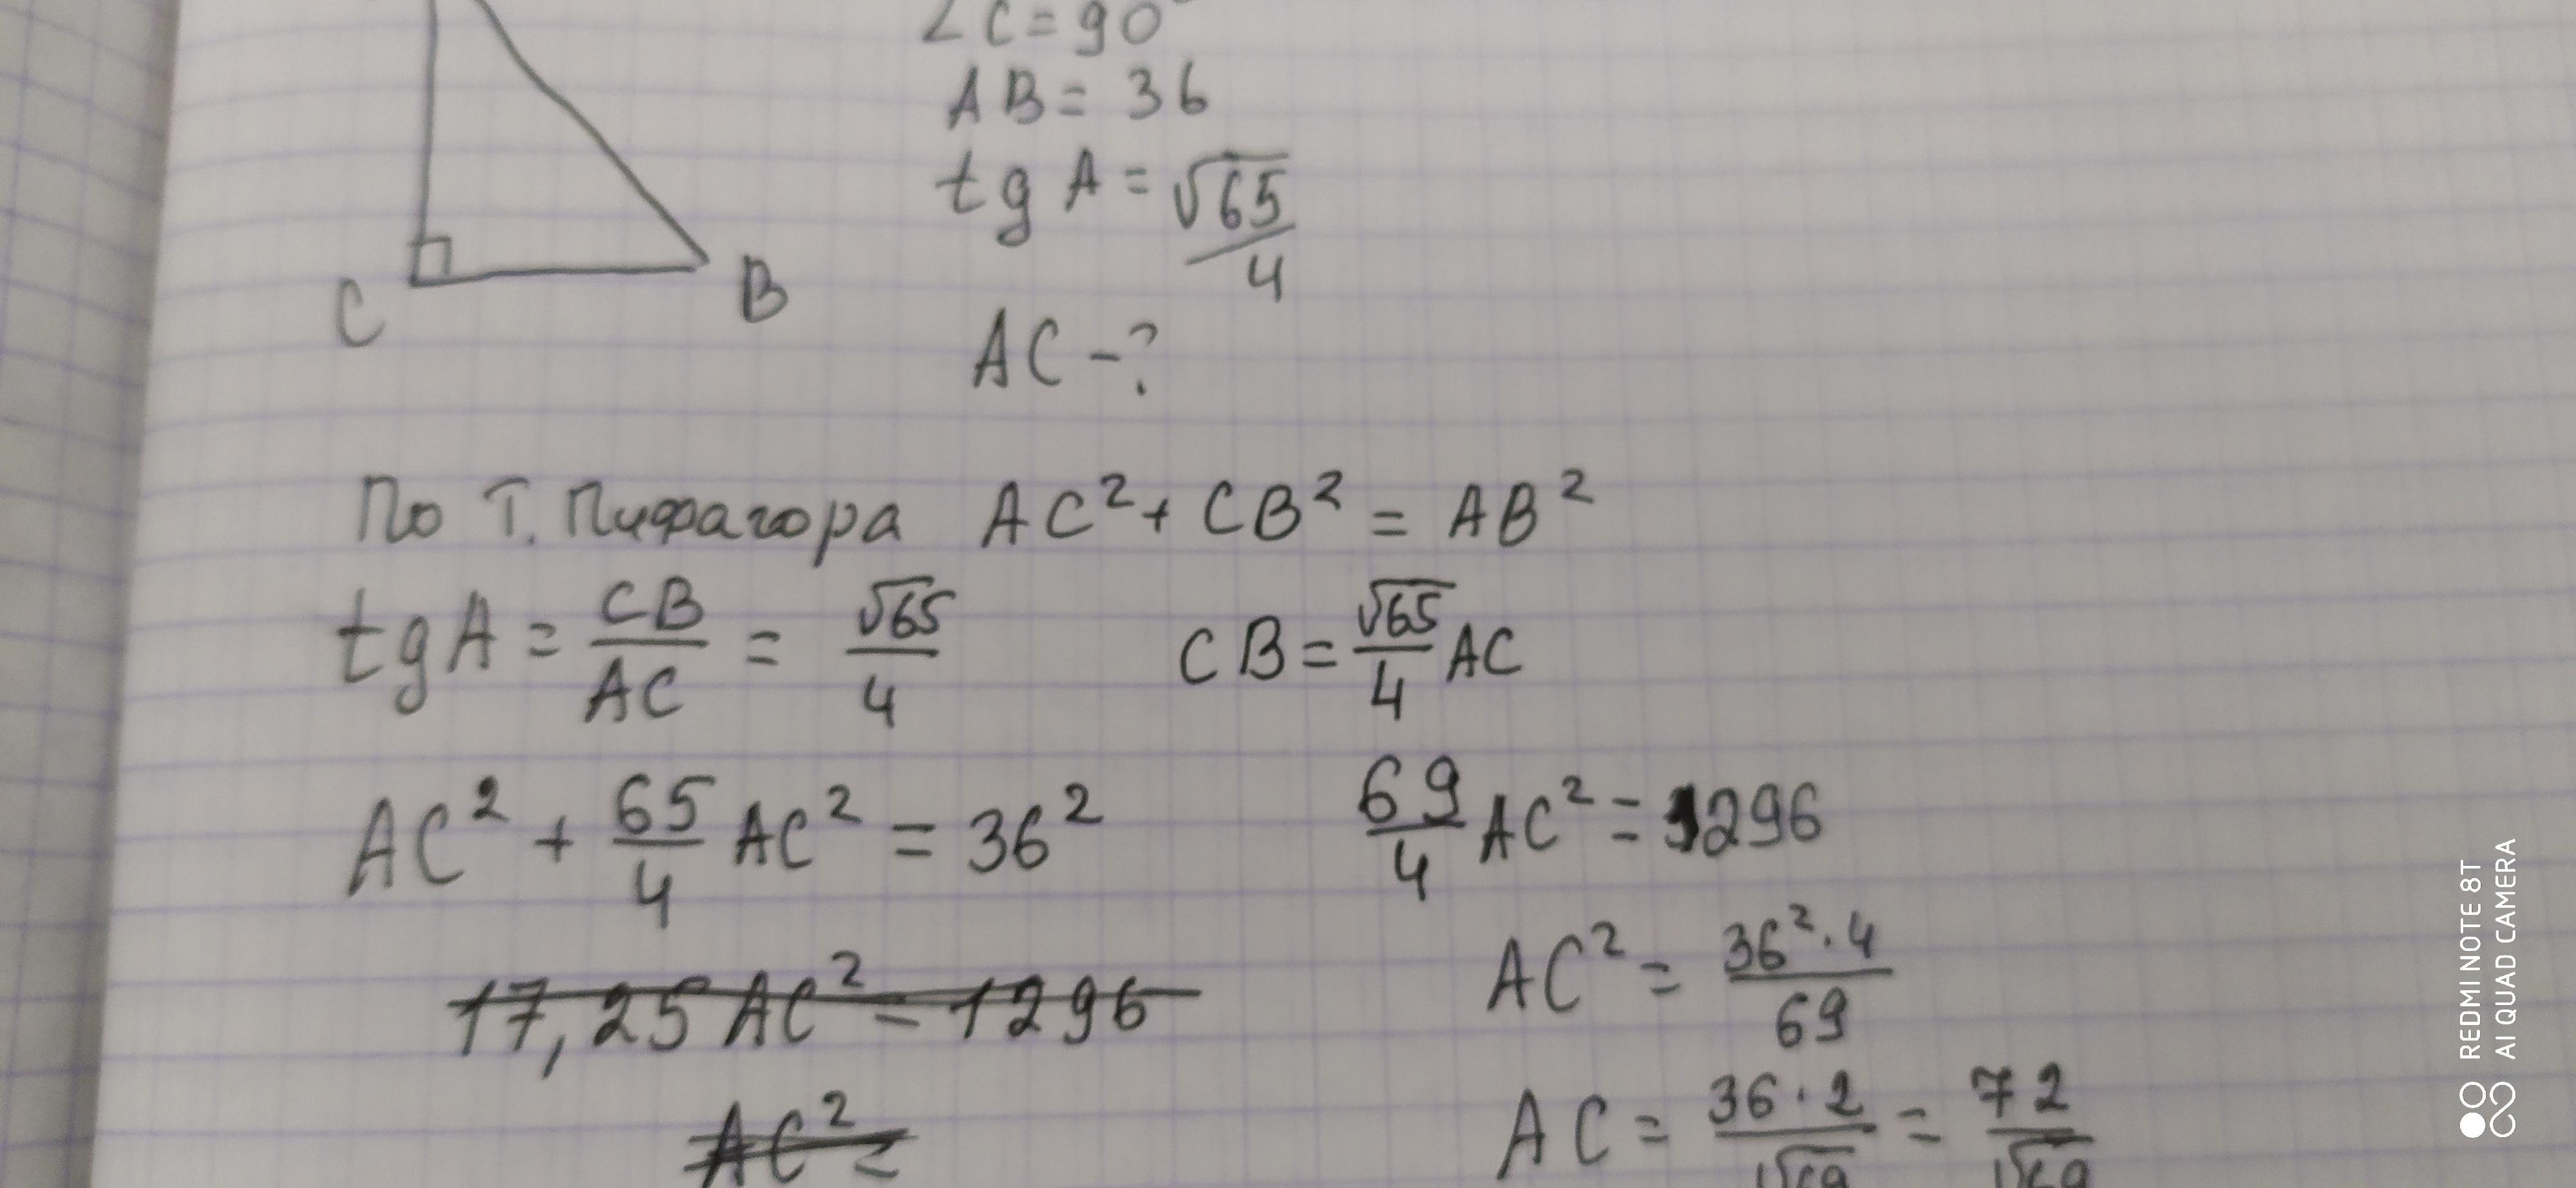 ∠C = 90°
AB = 36
tg A = √65/4
C
B
AC - ?
По Т. Пифагора AC² + CB² = AB²
tg A = CB/AC = √65/4 CB = √65/4 AC
AC² + 65/4 AC² = 36² 69/4 AC² = 1296
17,25 AC² = 1296 AC² = 36²·4/69
AC² = AC = 36·2/√69 = 72/√69
REDMI NOTE 8T
AI QUAD CAMERA